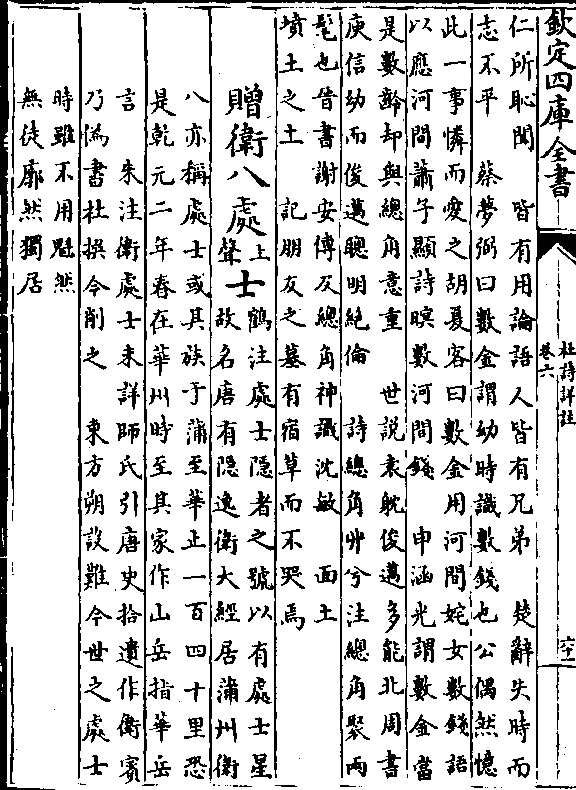 欽定四庫全書
杜詩詳註
卷六
六十一
仁所恥聞　皆有用論語人皆有兄弟　楚辭失時而
志不平　蔡夢弼曰數金謂幼時識數錢也公偶然憶
此一事憐而愛之胡夏客曰數金用河間姹女數錢語
以應河間蕭子顯詩暝數河間錢　申涵光謂數金當
是數齡却與總角意重　世說袁躭俊邁多能北周書
庾信幼而俊邁聰明絶倫　詩總角丱兮注總角聚兩
髦也晉書謝安傳及總角神識沈敏　面土
墳土之土　記朋友之墓有宿草而不哭焉
贈衛八處上聲士鶴注處士隱者之號以有處士星
故名唐有隠逸衛大經居蒲州衛
八亦稱處士或其族子蒲至華正一百四十里恐
是乾元二年春在華州時至其家作山岳指華岳
言　朱注衛處士未詳師氏引唐史拾遺作衛賓
乃偽書杜撰今削之　東方朔設難今世之處士
時雖不用魁然
無徒廓然獨居